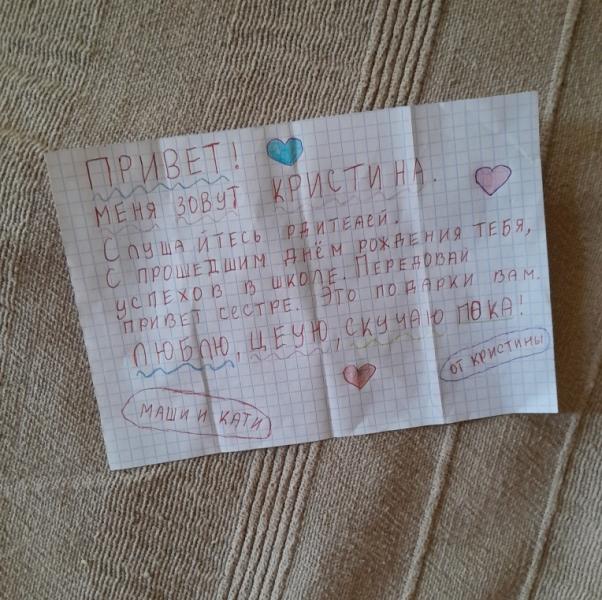 ПРИВЕТ!
МЕНЯ ЗОВУТ КРИСТИНА.
СЛУШАЙТЕСЬ РДИТЕЛЕЙ.
С ПРОШЕДШИМ ДНЁМ РОЖДЕНИЯ ТЕБЯ,
УСПЕХОВ В ШКОЛЕ. ПЕРЕДОВАЙ
ПРИВЕТ СЕСТРЕ. ЭТО ПОДАРКИ ВАМ.
ЛЮБЛЮ, ЦЕУЮ, СКУЧАЮ ПОКА!
ОТ КРИСТИНЫ
МАШИ И КАТИ